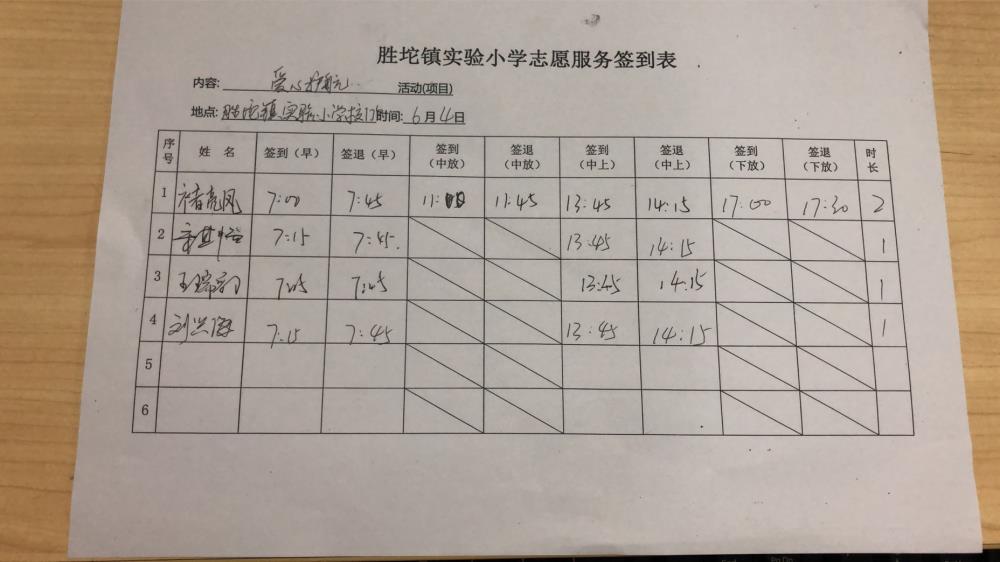 胜坨镇实验小学志愿服务签到表
内容: 爱心护航 活动(项目)
地点: 胜坨镇实验小学校门 时间: 6月4日
序号 姓名 签到（早） 签退（早） 签到（中放） 签退（中放） 签到（中上） 签退（中上） 签到（下放） 签退（下放） 时长
1 7:00 7:45 11:00 11:45 13:45 14:15 17:00 17:30 2
2 7:15 7:45. 13:45 14:15 1
3 13:45 14:15 1
4 7:15 7:45 13:45 14:15 1
5
6